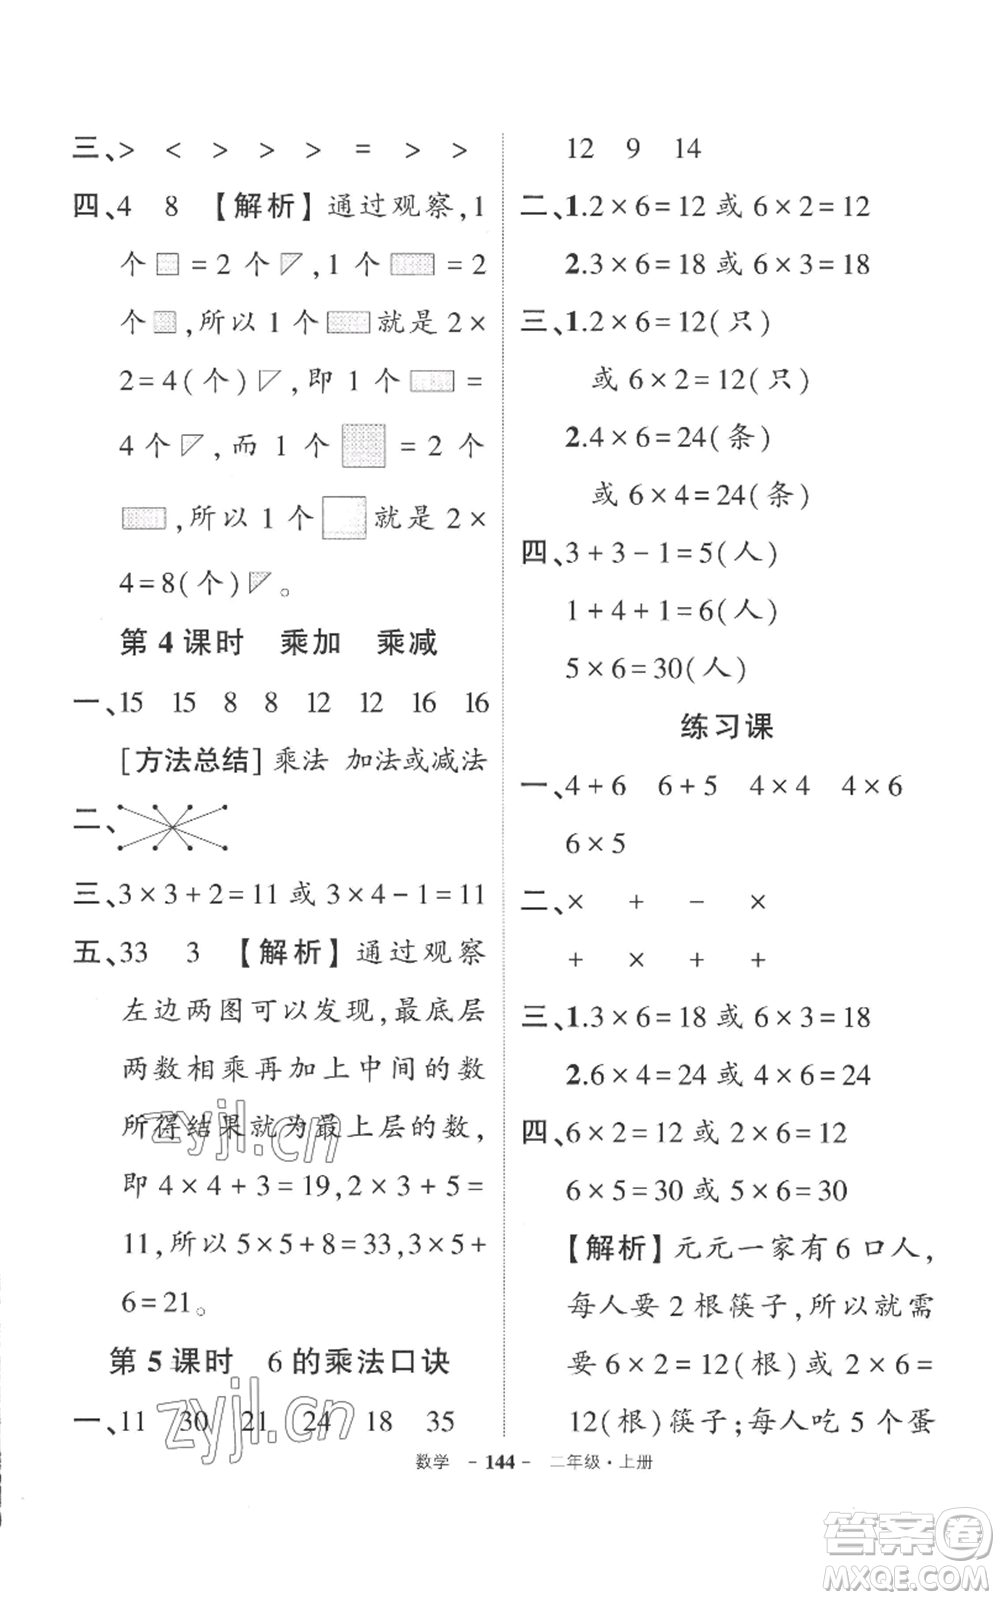 三、> < > > > = > >
四、4 8 【解析】通过观察,1
个 = 2 个 ,1 个 = 2
个 ,所以 1 个 就是 2 ×
2 = 4(个) ,即 1 个 =
4 个 ,而 1 个 = 2 个
,所以 1 个 就是 2 ×
4 = 8(个) 。
第 4 课时 乘加 乘减
一、15 15 8 8 12 12 16 16
[方法总结]乘法 加法或减法
二、
三、3 × 3 + 2 = 11 或 3 × 4 - 1 = 11
五、33 3 【解析】通过观察
左边两图可以发现,最底层
两数相乘再加上中间的数
所得结果就为最上层的数,
即 4 × 4 + 3 = 19,2 × 3 + 5 =
11,所以 5 × 5 + 8 = 33,3 × 5 +
6 = 21。
第 5 课时 6 的乘法口诀
一、11 30 21 24 18 35
12 9 14
二、1.2 × 6 = 12 或 6 × 2 = 12
2.3 × 6 = 18 或 6 × 3 = 18
三、1.2 × 6 = 12(只)
或 6 × 2 = 12(只)
2.4 × 6 = 24(条)
或 6 × 4 = 24(条)
四、3 + 3 - 1 = 5(人)
1 + 4 + 1 = 6(人)
5 × 6 = 30(人)
练习课
一、4 + 6 6 + 5 4 × 4 4 × 6
6 × 5
二、× + - ×
+ × + +
三、1.3 × 6 = 18 或 6 × 3 = 18
2.6 × 4 = 24 或 4 × 6 = 24
四、6 × 2 = 12 或 2 × 6 = 12
6 × 5 = 30 或 5 × 6 = 30
【解析】元元一家有 6 口人,
每人要 2 根筷子,所以就需
要 6 × 2 = 12(根)或 2 × 6 =
12(根)筷子;每人吃 5 个蛋
数学 - 144 - 二年级·上册
zyjl.cn
zyjl.cn
答案圈
MXQE.COM